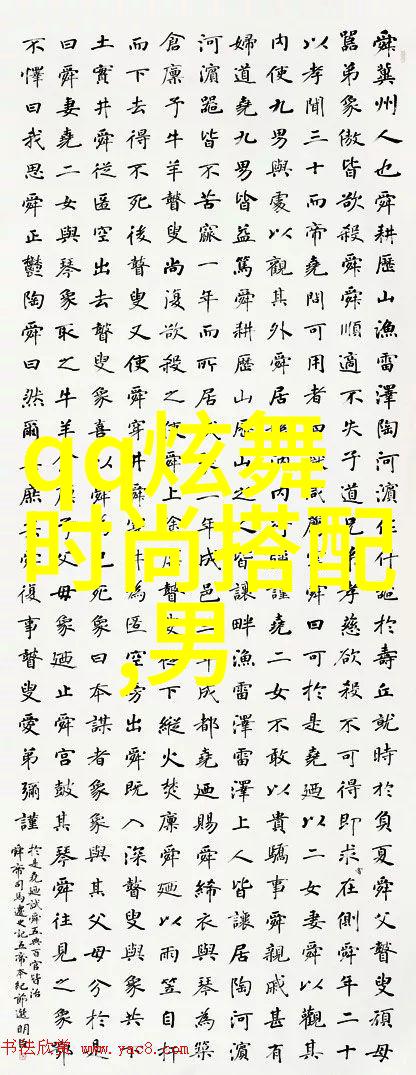 舜冀州人也舜耕歷山漁雷澤陶河濱作什器於壽丘就時於負夏舜父瞽叟頑母
嚚弟象傲皆欲殺舜舜順適不失子道兄弟孝慈欲殺不可得即求嘗在側舜年二十
以孝聞三十而帝堯問可用者四嶽咸薦虞舜曰可於是堯廼以二女妻舜以觀其
內使九男與處以觀其外舜居內行彌謹堯二女不敢以貴驕事舜親戚甚有
婦道堯九男皆益篤舜耕歷山歷山之人皆讓畔漁雷澤雷澤上人皆讓居陶河濱
河濱器皆不苦窳一年而所居成二年成邑三年成都堯廼賜舜絺衣與琴為築
倉廩予牛羊瞽叟尚復欲殺之使舜上塗廩瞽叟從下縱火焚廩舜廼以兩笠自扞
而下去得不死後瞽叟又使舜穿井舜穿井為匿空旁出舜既入深瞽叟與象共下
土實井舜從匿空出去瞽叟象喜以舜為已死象曰本謀者象象與其父母分於是
曰舜妻堯二女與琴象取之牛羊倉廩予父母象廼止舜宮鼓其琴舜往見之象鄂
不懌曰我思舜正鬱陶舜曰然爾其庶矣舜復事瞽叟愛弟彌謹
於是堯廼試舜五典百官皆治
舜帝司馬遷史記五帝本紀節選明
qq炫舞
时尚搭配
,男
书法欣赏 www.yac8.com